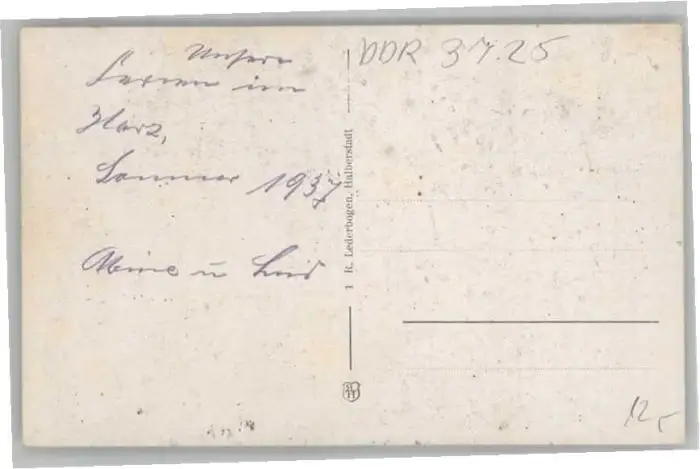 Unsere
Ferien im
Harz,
Sommer 1937
u
DDR 37.25
1 R. Lederbogen, Halberstadt
12,-